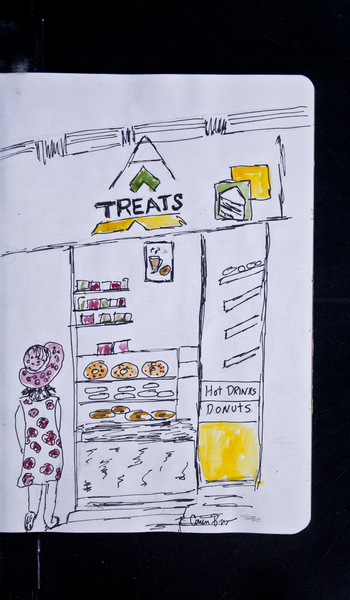 TREATS
Hot DRINKS
DONUTS